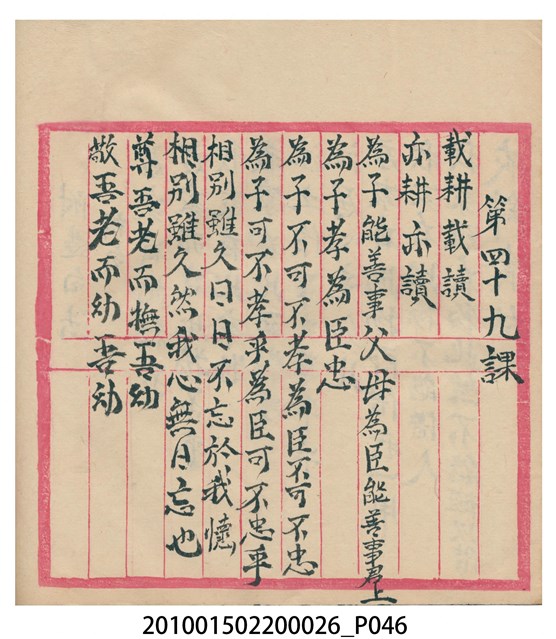 第四十九課
載耕載讀
亦耕亦讀
為子能善事父母為臣能善事君上
為子孝為臣忠
為子不可不孝為臣不可不忠
為子可不孝乎為臣可不忠乎
相别雖久日日不忘於我懷
相别雖久然我心無日忘也
尊吾老而撫吾幼
敬吾老而幼吾幼
201001502200026_P046